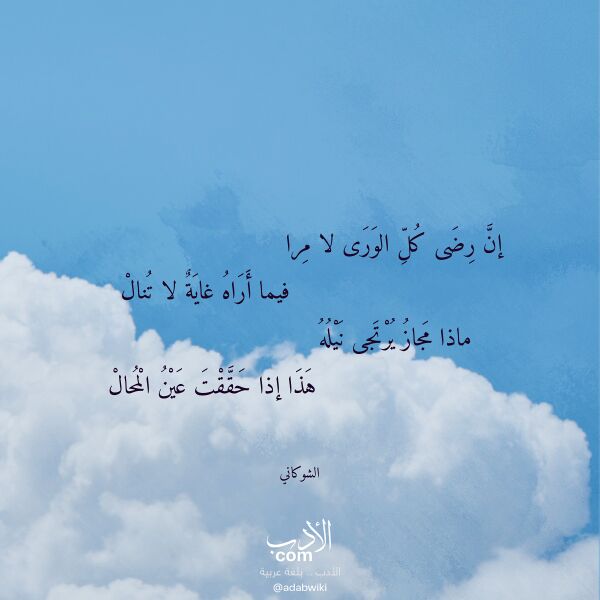 إنَّ رِضَى كُلِّ الوَرَى لا مِرا
فيما أَرَاهُ غايَةٌ لا تُنالْ
ماذا مَجازُ يُرْتَجى نَيْلُهُ
هَذَا إذا حَقَّقْتَ عَيْنُ الْمُحالْ
الشوكاني
الأدب
com
الأدب .. بلغة عربية
@adabwiki